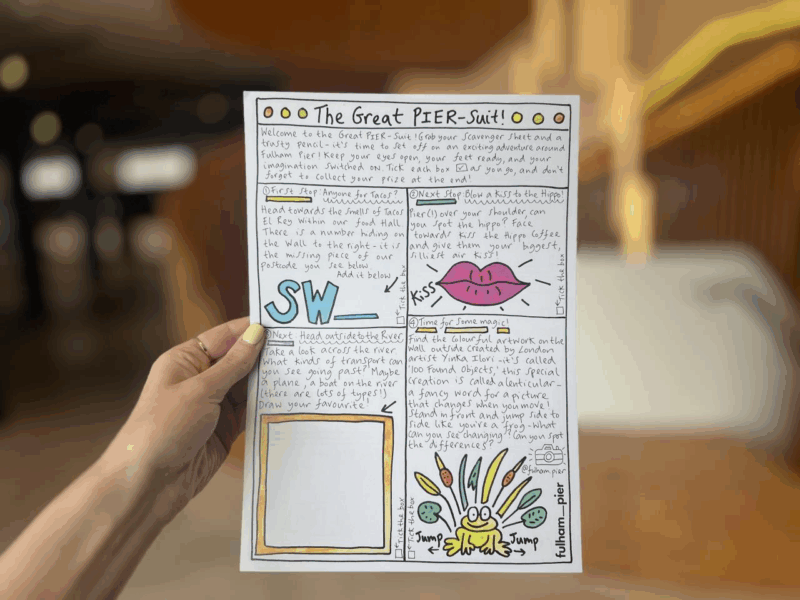 The Great PIER-Suit!
Welcome to the Great PIER-Suit! Grab your Scavenger Sheet and a
trusty pencil - it's time to set off on an exciting adventure around
Fulham Pier! Keep your eyes open, your feet ready, and your
imagination switched on. Tick each box ☑ as you go, and don't
forget to collect your prize at the end!
① First Stop: Anyone for Tacos?
Head towards the smells of Tacos
El Rey within our food Hall.
There is a number hiding on
the wall to the right - it is
the missing piece of our
postcode you see below.
Add it below
SW__
Tick the box
② Next Stop: Blow a Kiss to the Hippo!
Pier(!) over your shoulder, can
you spot the hippo? Face
towards Kiss the Hippo Coffee
and give them your biggest,
silliest air kiss!
Kiss
Tick the box
③ Next: Head outside to the River
Take a look across the river
What kinds of transport can
you see going past? Maybe
a plane, a boat on the river
(there are lots of types!)
Draw your favourite!
Tick the box
④ Time for some magic!
Find the colourful artwork on the
wall outside created by London
artist Yinka Ilori. it's called
'100 Found Objects', this special
creation is called a lenticular -
a fancy word for a picture,
that changes when you move!
Stand in front and jump side to
side like you're a frog - What
can you see changing? Can you spot
the differences?
@fulham.pier
Jump
Jump
Tick the box
fulham_pier